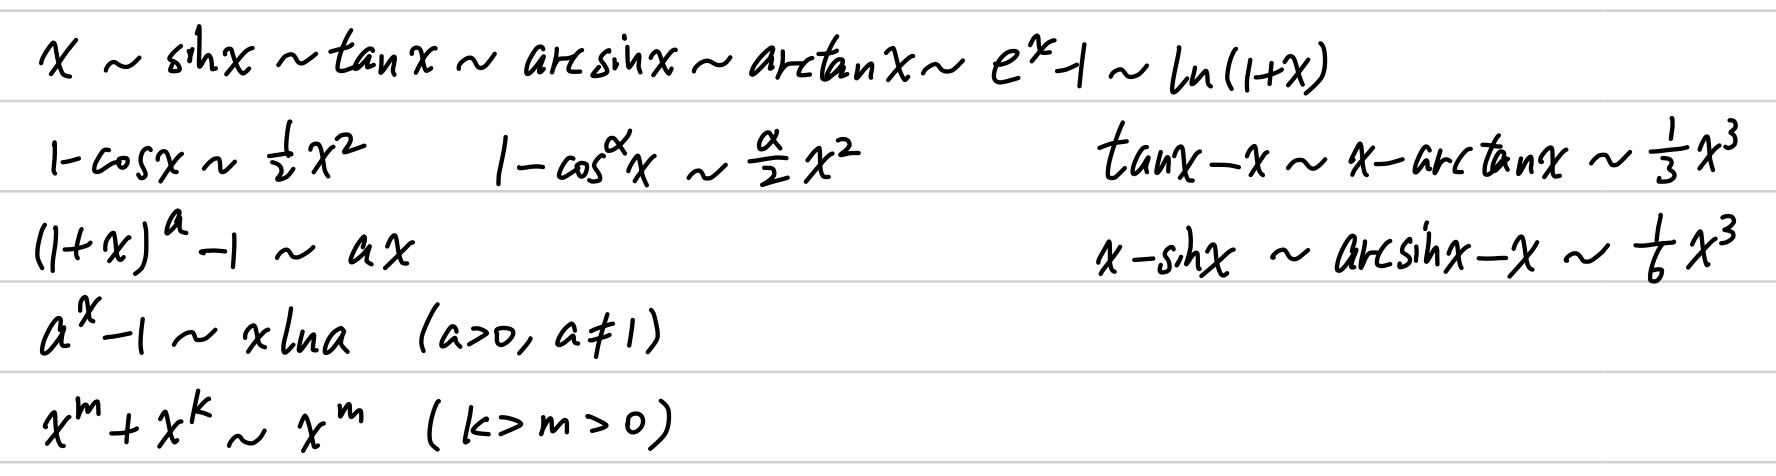 x ~ sinx ~ tanx ~ arcsinx ~ arctanx ~ e^x-1 ~ ln(1+x)
1-cosx ~ 1/2 x^2    1-cos^α x ~ α/2 x^2    tanx-x ~ x-arctanx ~ 1/3 x^3
(1+x)^a -1 ~ ax    x-sinx ~ arcsinx-x ~ 1/6 x^3
a^x-1 ~ xlna (a>0, a≠1)
x^m+x^k ~ x^m (k>m>0)